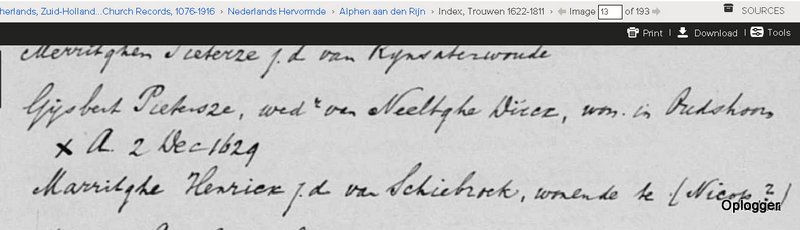 herlands, Zuid-Holland...Church Records, 1076-1916 › Nederlands Hervormde › Alphen aan den Rijn › Index, Trouwen 1622-1811 › Image 13 of 193 SOURCES
Print | Download | Tools
Merritghen Pieterze j.d van Rynsaterwoude
Gijsbert Pietersze, wedr van Neeltghe Dircx, won. in Oudshoorn
x A. 2 Dec 1629
Marritghe Henricx j.d van Schiebroek, wonende te (Nicop?)
Oplogger